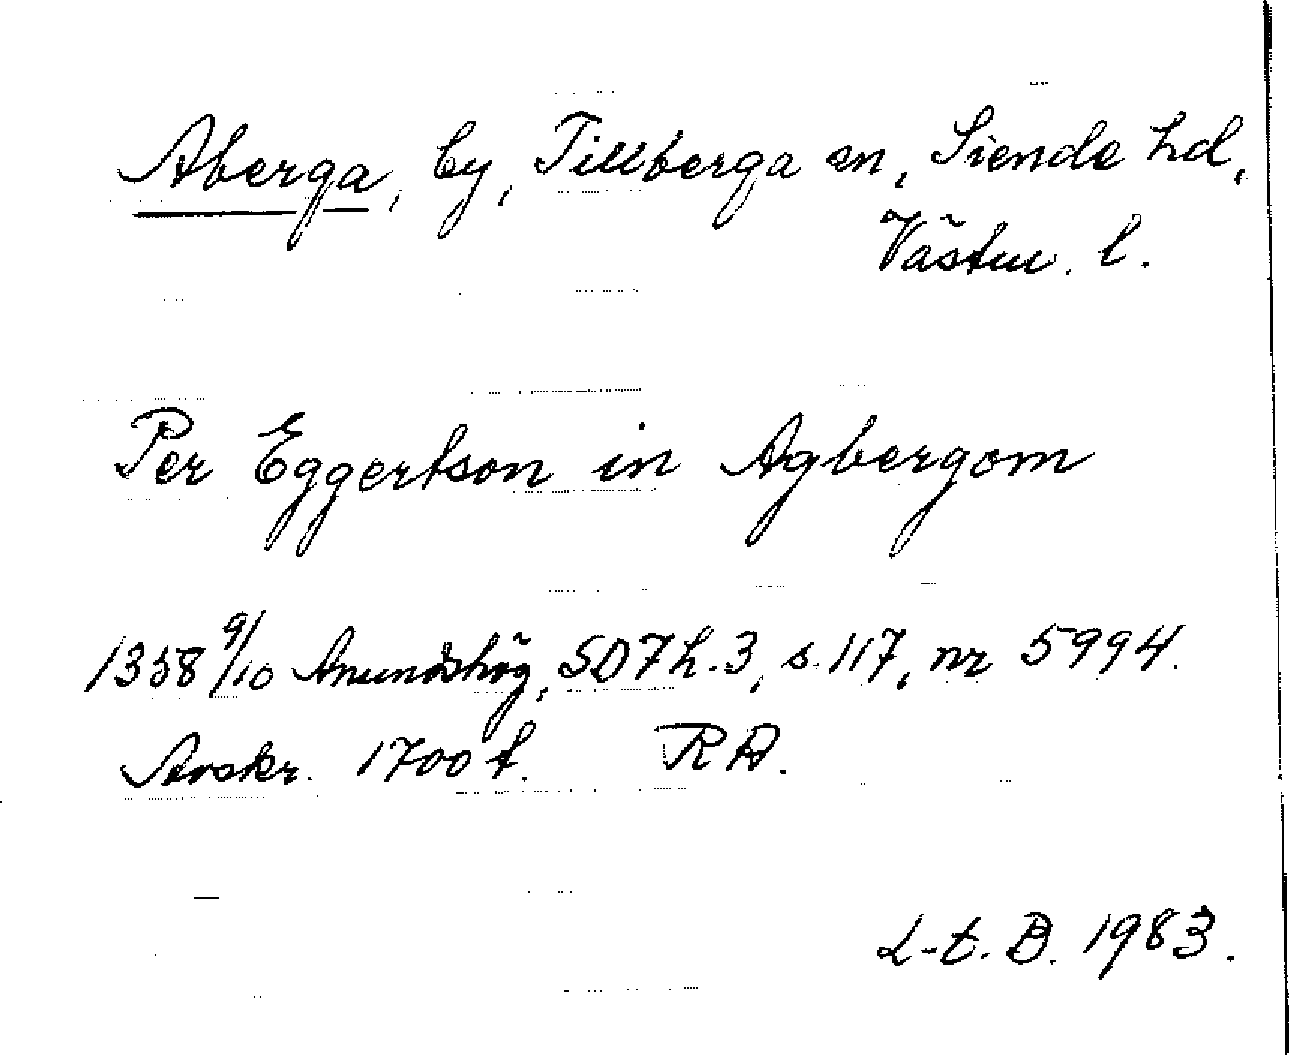 Aberga, by, Tillberga sn, Siende hd,
Västm. l.
Per Eggertson in Agbergom
1358 9/10 Anundshög, SD7 h. 3, s. 117, nr 5994.
Avskr. 1700 t. RA.
L-t. B. 1983.